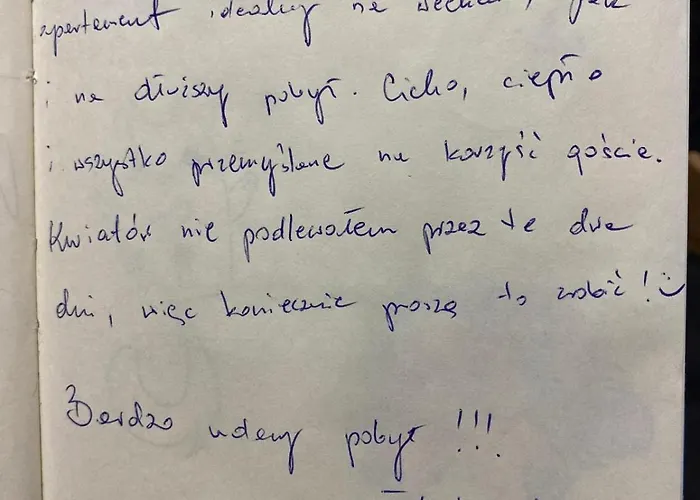 apartament idealny na weekend, jak
i na dłuższy pobyt. Cicho, ciepło
i wszystko przemyślane na korzyść gościa.
Kwiatów nie podlewałem przez te dwa
dni, więc koniecznie proszę to zrobić! :)
Bardzo udany pobyt !!!